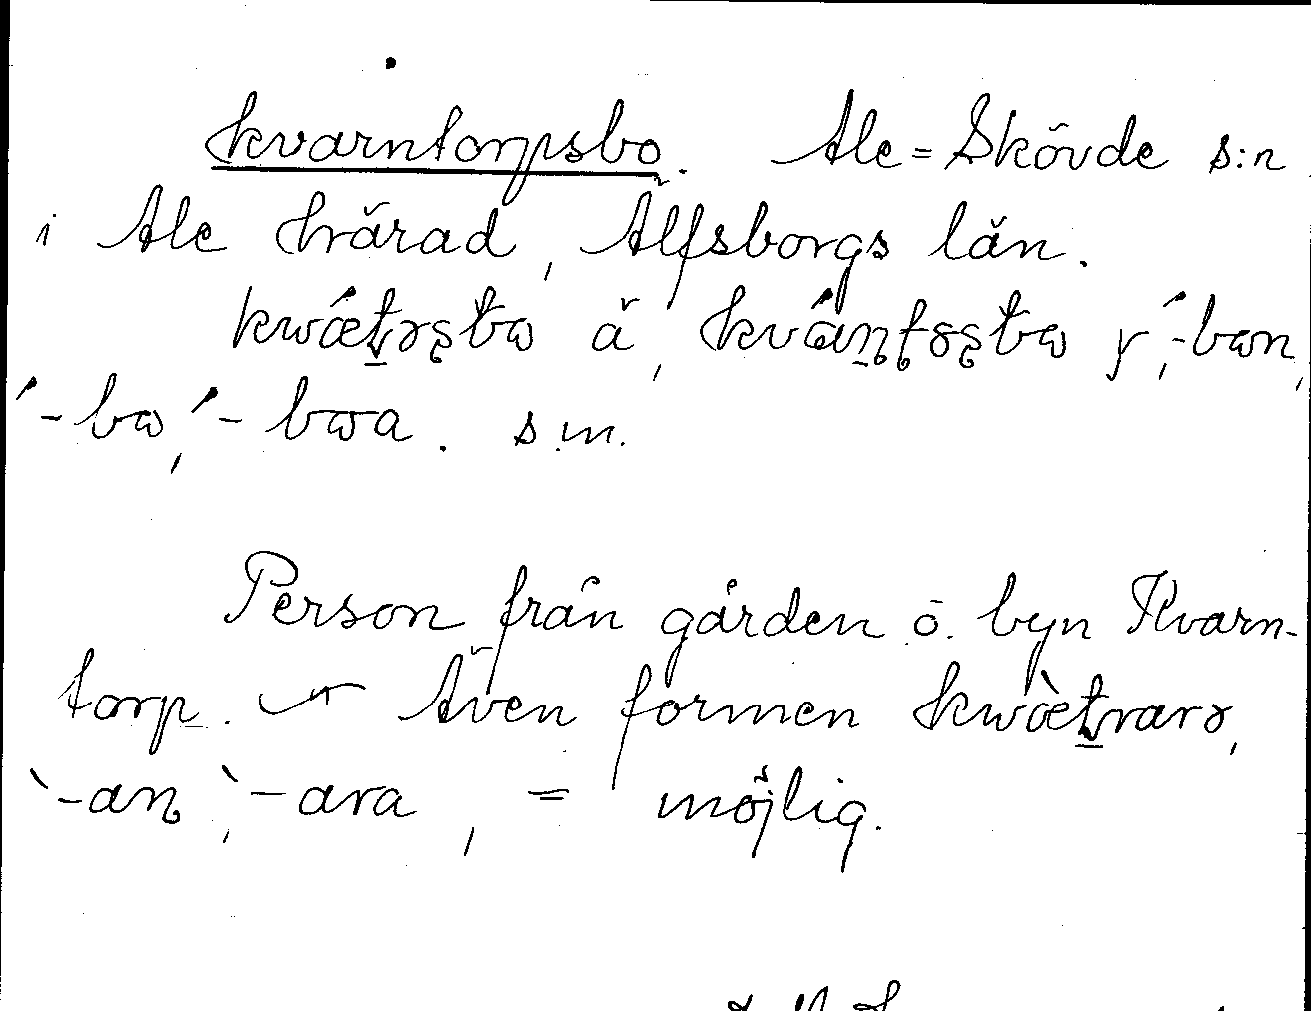 kvarntorpsbo. Ale=Skövde s:n
i Ale härad, Älfsborgs län.
kwǽt̠ɤʂtɷ ä, kván̠ʈɤʂtɷ r,́-bɷn,
́-bɷ,́-bɷa. s.m.
Person från gården o. byn Kvarn-
torp. — Även formen kwæ̀t̠rarɤ,
̀-an,̀-ara, = möjlig.